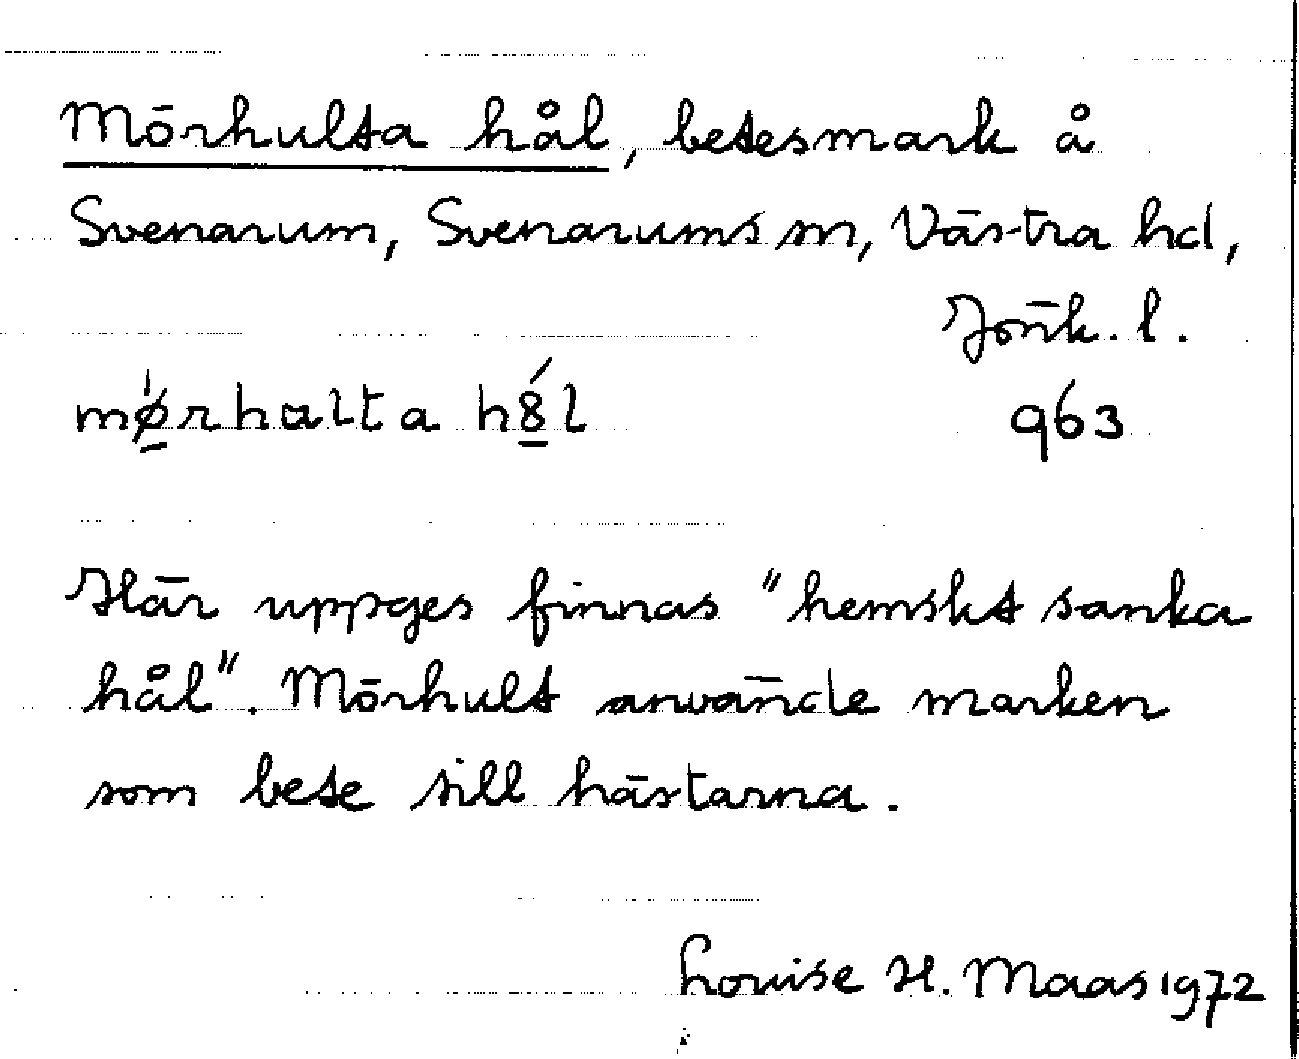 Mörhulta hål, betesmark å
Svenarum, Svenarums sn, Västra hd,
Jönk. l.
mø̲̍rhalta hȣ̲́l 963
Här uppges finnas "hemskt sanka
hål". Mörhult använde marken
som bete till hästarna.
Louise H. Maas 1972